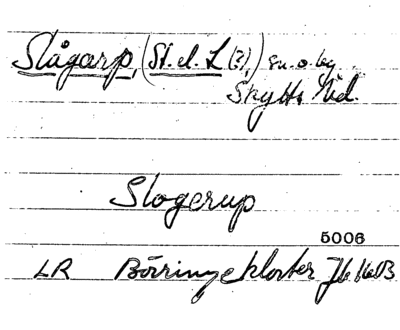 Slågarp, (St. el. L (?),) sn. o. by
Skytts hd.
Slogerup
5006
LR Börringekloster Jb